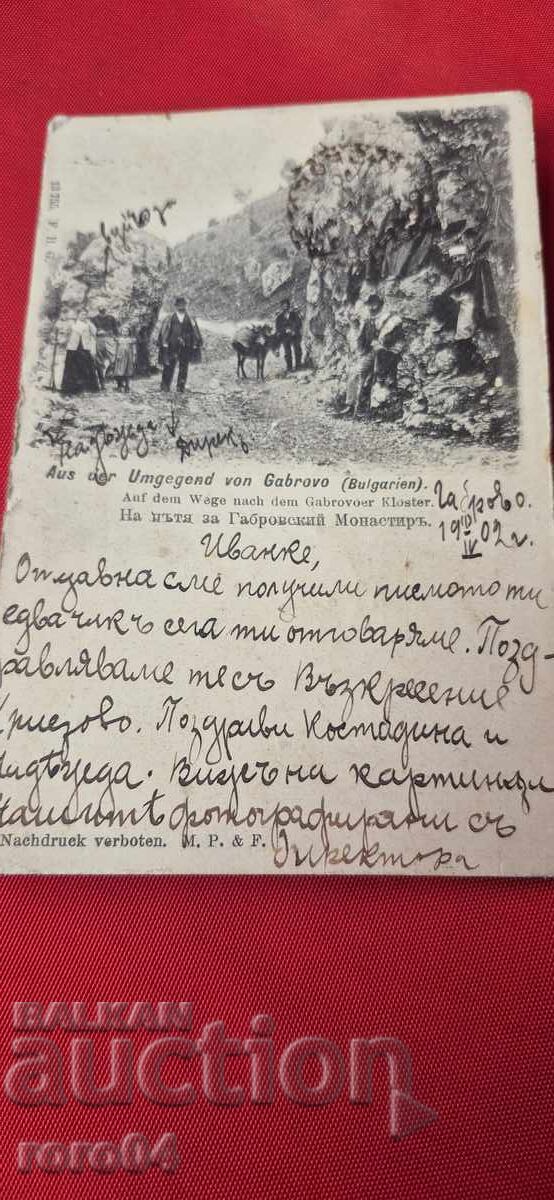 Надѣжда
Дирек.
Aus der Umgegend von Gabrovo (Bulgarien).
Auf dem Wege nach dem Gabrovoer Kloster.
На пътя за Габровский Монастиръ.
Габрово.
19 10/IV 02 г.
Иванке,
Отдавна сме получили писмото ти
едвачакъ сега ти отговаряме. Позд-
равляваме те съ Възкресение
Христово. Поздрави Костадина и
Надѣжда. Визсъ на картинка
фотографирани съ
Nachdruck verboten. M. P. & F.
Директора
BALKAN
auction
roro04